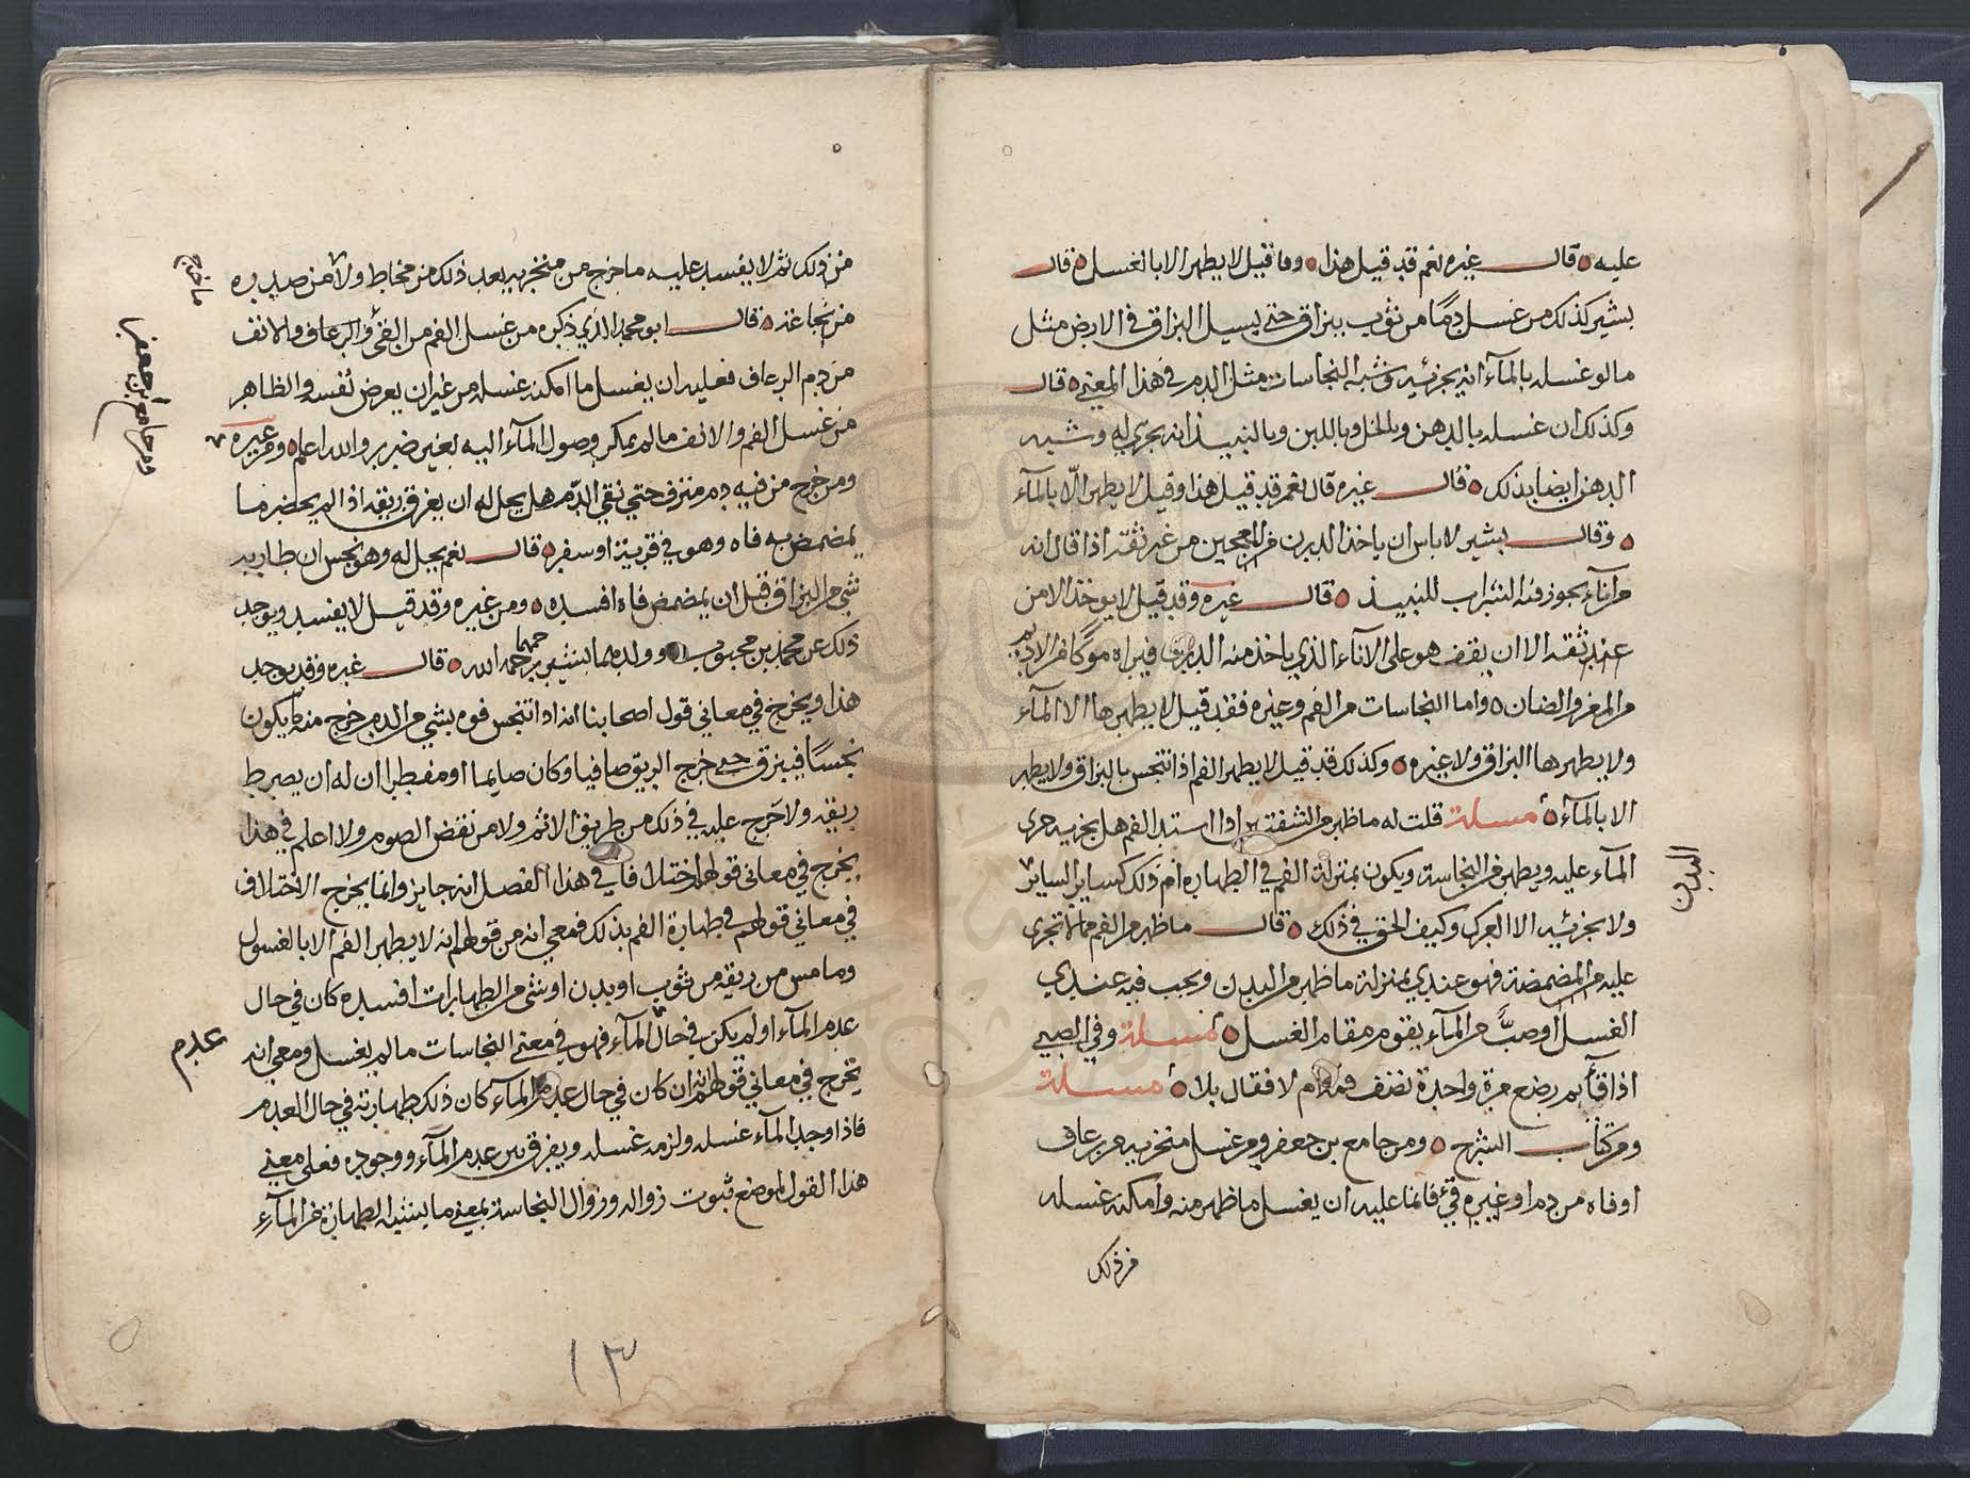 عليه ه قال غيره نعم قد قيل هذا ه وما قيل لا يطهر الا بالغسل ه قال
بشير كذلك من غسل دمًا من ثوب ببزاق حتى يسيل البزاق في الارض مثل
ما لو غسله بالمآء انه يجزئه وشبه النجاسات مثل الدم في هذا المعنى ه قال
وكذلك ان غسله بالدهن وبالخل وباللبن وبالنبيذ انه يجزي له وشبه
الدهن ايضا بذلك ه قال غيره قال نعم قد قيل هذا وقيل لا يطهر الّا بالمآء
ه وقال بشير لا باس ان ياخذ من غير ثقة اذا قال انه
من انآء يجوز فيه الشراب للنبيذ ه قال غيره وقد قيل لا يوخذ الا من
عند ثقة الا ان يقف هو على الانآء الذي ياخذ منه فيراه موكًا من الاديم
من المغز والضان ه واما النجاسات من الفم وغيره فقد قيل لا يطهرها الا المآء
ولا يطهرها البزاق ولا غيره ه وكذلك قد قيل لا يطهر الفم اذا تنجس بالبزاق ولا يطهر
الا بالمآء ه مسلة قلت له ما ظهر من الشفتين اذا استد الفم هل يجزيه جري
المآء عليه ويطهر من النجاسة ويكون بمنزلة الفم في الطهارة ام ذلك كساير
البدن
ولا يجزئه الا العرك وكيف الحق في ذلك ه قال ما ظهر من الفم مما لا تجري
عليه المضمضة فهو عندي بمنزلة ما ظهر من البدن ويجب فيه عندي
الغسل او صبٌّ من المآء يقوم مقام الغسل ه مسلة وفي الصبي
اذا قآء بم رضع مرة واحدة نضف فمه ام لا فقال بلا ه مسلة
ومن كتاب الشرح ه ومن جامع بن جعفر ومن غسل منخريه من رعاف
او فاه من دم او غيره قئ فانما عليه ان يغسل ما ظهر منه وامكنه غسله
من ذلك
من ذلك ثم لا يفسد عليه ما خرج من منخريه بعد ذلك من مخاط ولا من صدره
ما خرج
من نخاعة ه قال ابو محمد الذي ذكره من غسل الفم من القئ والرعاف والانف
من دم الرعاف فعليه ان يغسل ما امكنه غسله من غير ان يعرض نفسه والظاهر
من غسل الفم والانف ما لم يمكن وصول المآء اليه بغير ضرر والله اعلم ه ومن غيره
ومن جامع ابن جعفر
ومن خرج من فيه دم فبزق حتى نقي الدم هل يحل له ان يغرق ريقه اذا لم يحضره ما
يمضمض به فاه وهو في قرية او سفر ه قال نعم يحل له وهو نجس ان طار به
شي من البزاق قبل ان يمضمض فاه افسده ه ومن غيره وقد قيل لا يفسد ويوجد
ذلك عن محمد بن محبوب وولده بشير رحمهما الله ه قال غيره وقد يوجد
هذا ويخرج في معاني قول اصحابنا انه اذا تنجس فوه بشي من الدم خرج منه ما يكون
نجسًا فيبزق حتى خرج الريق صافيا وكان صايما او مفطرا ان له ان يصرط
ريقه ولا حَرج عليه في ذلك من طريق الاثم ولا من نقض الصوم ولا اعلم في هذا
يخرج في معاني قولهم اختلافا في هذا الفصل انه جايز وانما يخرج الاختلاف
في معاني قولهم في طهارة الفم بذلك فمعي انه من قولهم انه لا يطهر الفم الا بالغسول
وما مس من ريقه من ثوب او بدن او شي من الطهارات افسده كان في حال
عدم المآء او لم يكن في حال المآء فهو في معنى النجاسات ما لم يغسل ومعي انه
عدم
يخرج في معاني قولهم ان كان في حال عدم المآء كان ذلك طهارته في حال العدم
فاذا وجد المآء غسله ولزمه غسله ويفرق بين عدم المآء ووجوده فعلى معنى
هذا القول لموضع ثبوت زواله وزوال النجاسة بمعنى ما يشبه الطهارة من المآء
١٣